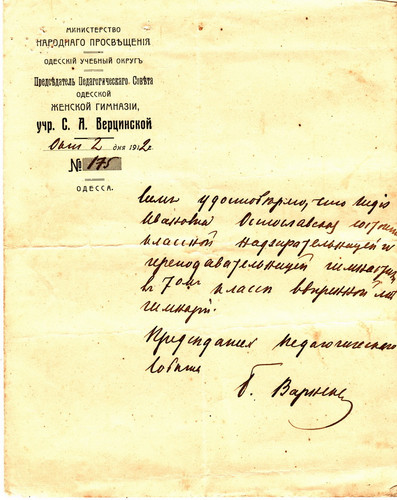 МИНИСТЕРСТВО
НАРОДНАГО ПРОСВѢЩЕНІЯ
ОДЕССКІЙ УЧЕБНЫЙ ОКРУГЪ
Предсѣдатель Педагогическаго Совѣта
ОДЕССКОЙ
ЖЕНСКОЙ ГИМНАЗІИ,
учр. С. А. Верцинской
Окт 2 дня 1912г.
№ 175
ОДЕССА.
Симъ удостовѣряю, что
Ивановна состоитъ
классной надзирательницей и
преподавательницей гимнастики
въ 7ом классѣ ввѣренной мнѣ
гимназіи.
Предсѣдатель педагогическаго
Совѣта